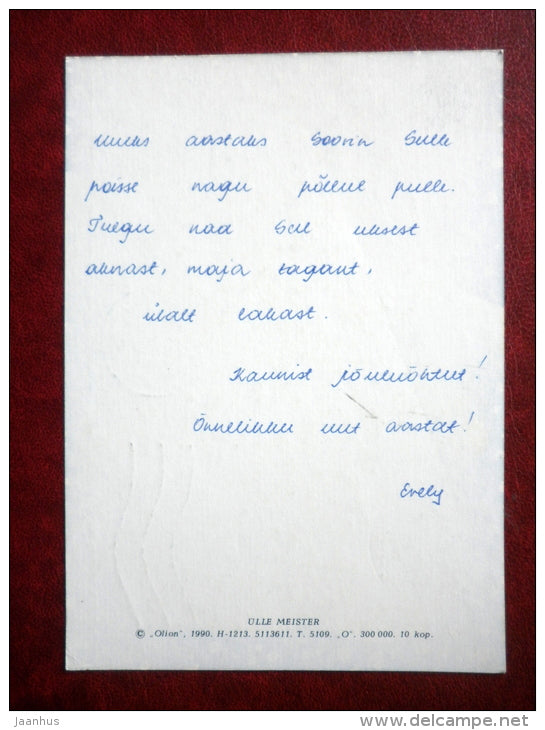 Uueks aastaks Soovin Sulle
poisse nagu põllul pulle.
Tulgu nad Sul uksest
aknast, maja tagant,
ülalt lakast.
Kaunist jõuluõhtut!
Õnnelikku uut aastat!
Evely
ÜLLE MEISTER
© „Olion“, 1990. H-1213. 5113611. T. 5109. „O“. 300 000. 10 kop.
jaanhus
www.delcampe.net